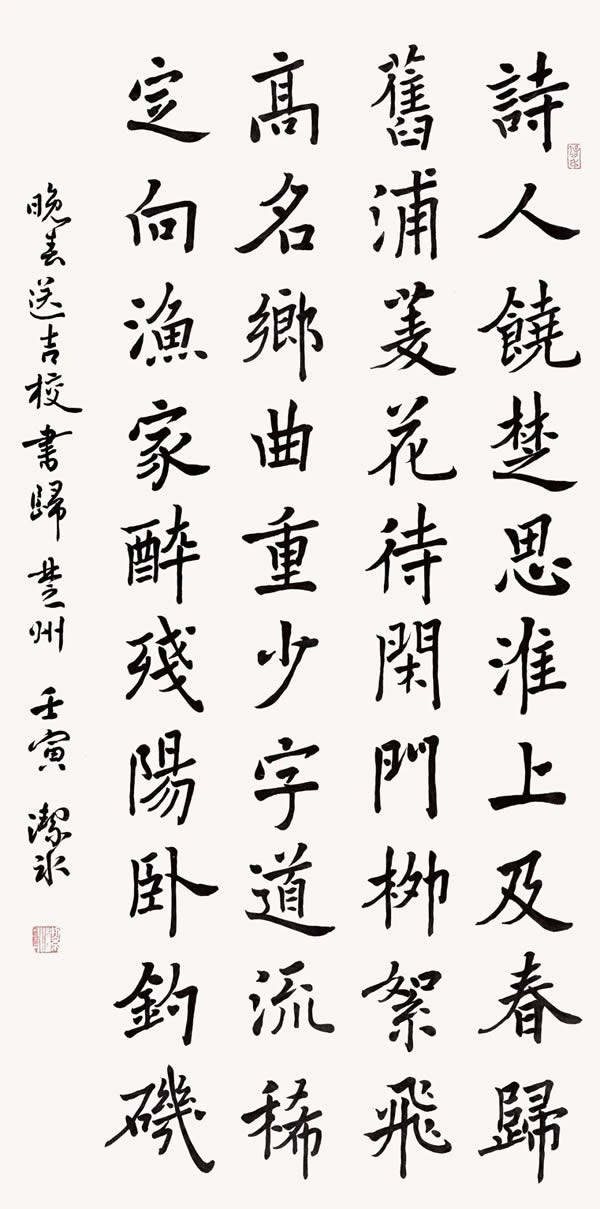 詩人饒楚思淮上及春歸
舊浦菱花待閑門柳絮飛
高名鄉曲重少字道流稀
定向漁家醉殘陽卧釣磯
晚春送吉校書歸楚州 壬寅 潔冰